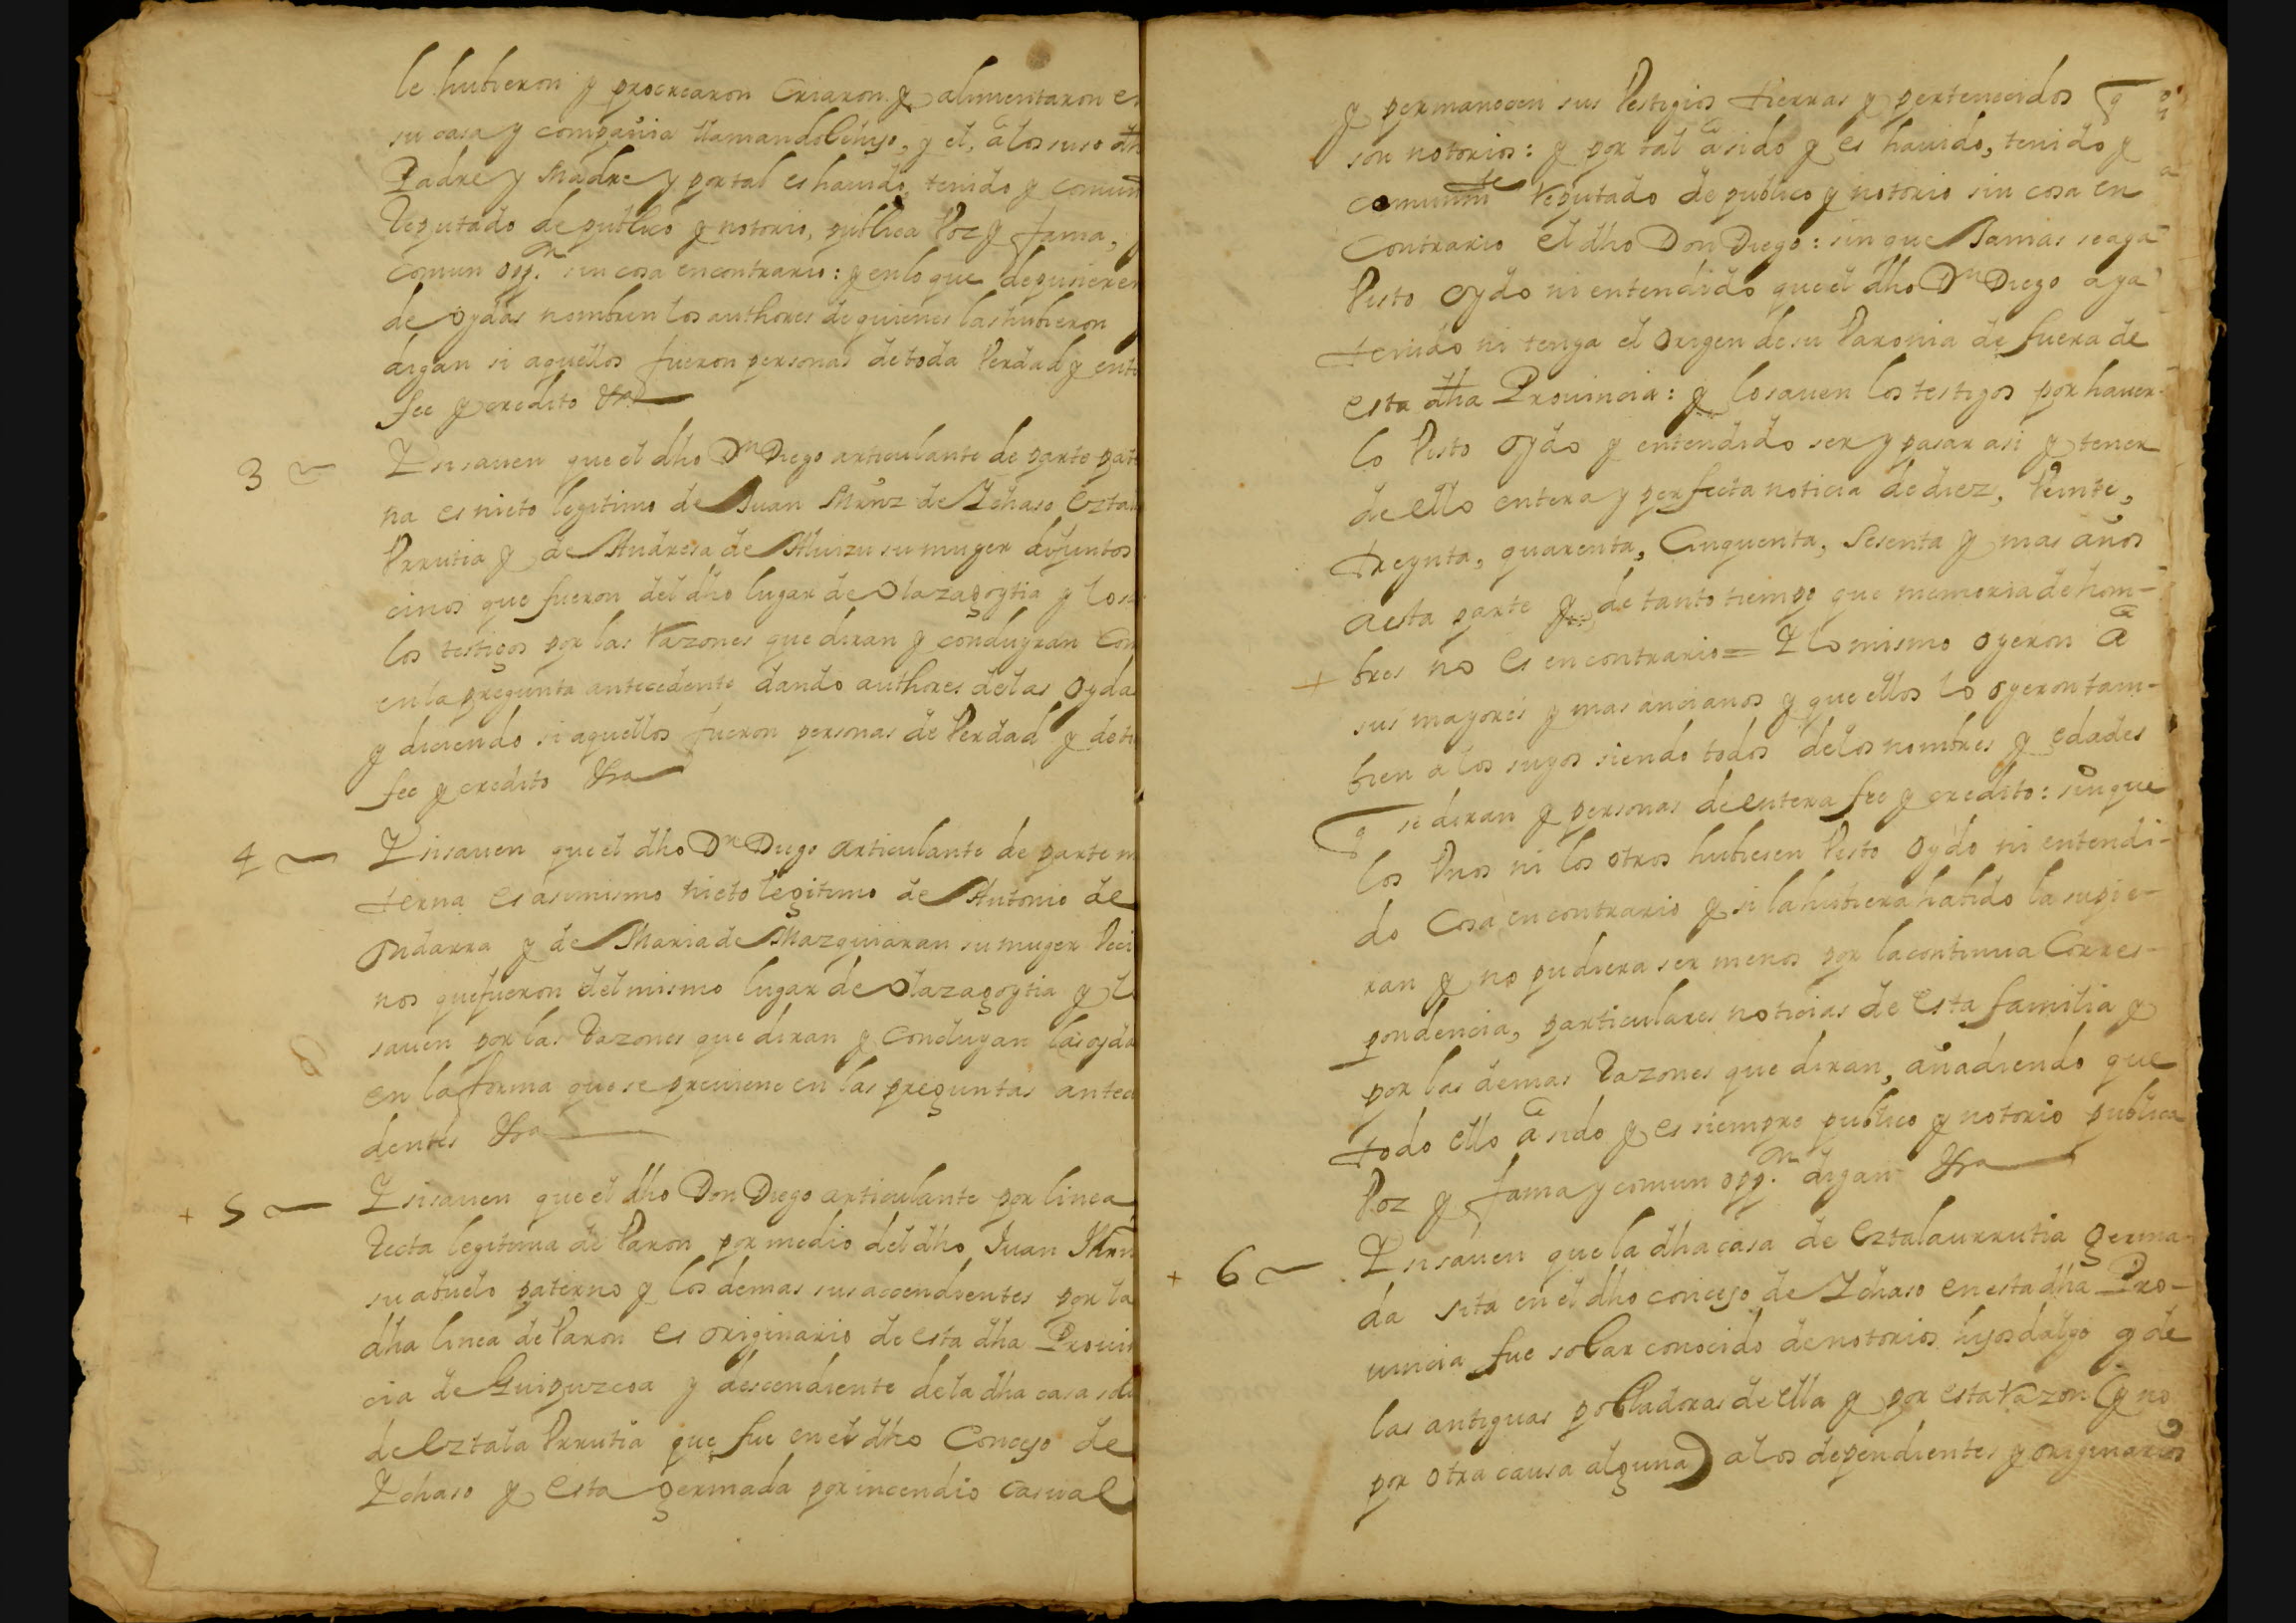 le hubieron y procrearon criaron y alimentaron en
su casa y compañia llamandole hijo, y el, a los suso dh
Padre y Madre y por tal es hauido, tenido y comun
Reputado de publico y notorio, publica voz y fama,
comun opp.on sin cosa en contrario: y en lo que depusieren
de oydas nombren los authores de quienes las hubieron
digan si aquellos fueron personas de toda verdad y ent
fee y credito &ra
3 Y si sauen que el dho Dn Diego articulante de parte pate
na es nieto legitimo de Juan Mrnz de Ychaso Eztala
Vrrutia y de Andresa de Aluizu su muger difuntos
cinos que fueron del dho lugar de Olazagoytia y lo s
los testigos por las razones que diran y concluyran Com
en la pregunta antecedente dando authores de las oydas
y diciendo si aquellos fueron personas de verdad y de
fee y credito &ra
4 Y si sauen que el dho Dn Diego articulante de parte m
terna es asimismo nieto legitimo de Antonio de
Ondarra y de Maria de Mazquiaran su muger veci
nos que fueron del mismo lugar de Olazagoytia y l
sauen por las razones que diran y concluyan las oyda
en la forma que se preuiene en las preguntas antece
dentes &ra
+ 5 Y si sauen que el dho Don Diego articulante por linea
recta legitima de varon por medio del dho Juan Mrn
su abuelo paterno y los demas sus accendientes por la
dha linea de varon es originario de esta dha Prouin
cia de Guipuzcoa y descendiente de la dha casa sola
de Eztala Vrrutia que fue en el dho Concejo de
Ychaso y esta germada por incendio casual
y permanecen sus vestigios tierras y pertenecidos q
son notorios: y por tal a sido y es hauido, tenido y
comunmte reputado de publico y notorio sin cosa en
contrario el dho Don Diego: sin que Jamas se aya
visto oydo ni entendido que el dho Dn Diego aya
tenido ni tenga el origen de su varonia de fuera de
esta dha Prouincia: y lo sauen los testigos por hauer-
lo visto oydo y entendido ser y pasar asi y tener
de ello entera y perfecta noticia de diez, veinte,
treynta, quarenta, Cinquenta, Sesenta y mas años
a esta parte y de tanto tiempo que memoria de hom-
+ bres no es en contrario = Y lo mismo oyeron a
sus mayores y mas ancianos y que ellos lo oyeron tam-
bien a los suyos siendo todos de los nombres y edades
q se diran y personas de entera fee y credito: sin que
los vnos ni los otros hubiesen visto oydo ni entendi-
do cosa en contrario y si la hubiera habido la supie-
ran y no pudiera ser menos por la continua Corres-
pondencia, particulares noticias de esta familia y
por las demas razones que diran, añadiendo que
todo ello a sido y es siempre publico y notorio publica
voz y fama y comun opp.on digan &ra
+ 6 Y si sauen que la dha casa de Eztalaurrutia germa-
da sita en el dho concejo de Ychaso en esta dha Pro-
uincia fue solar conocido de notorios hijosdalgo y de
las antiguas pobladoras de ella y por esta razon (y no
por otra causa alguna) a los dependientes y originarios